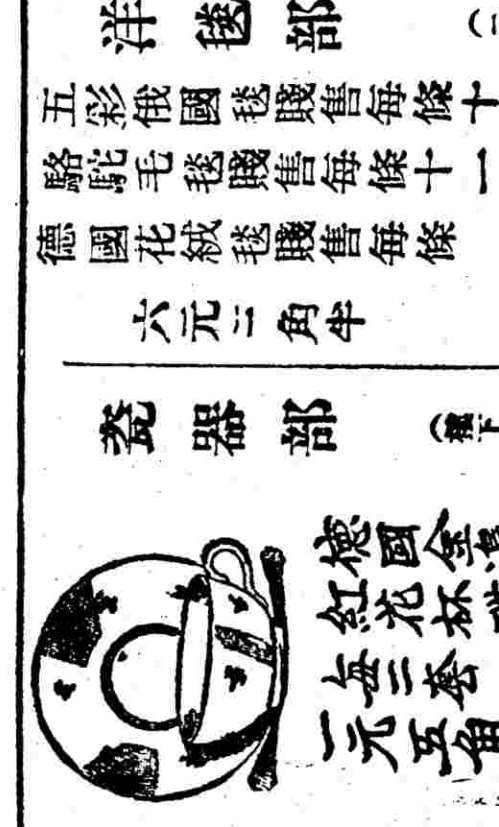 洋毯部（二
五彩俄國毯賤售每條十
駱駝毛毯賤售每條十一
德國花絨毯賤售每條
六元二角半
瓷器部（樓下
德國金邊
紅花杯
每三套
一元五角